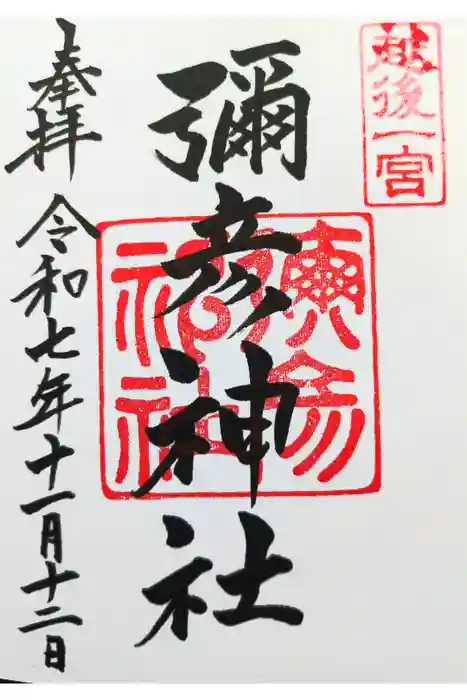 越後一宮
彌彦神社
奉拝 令和七年十一月十二日